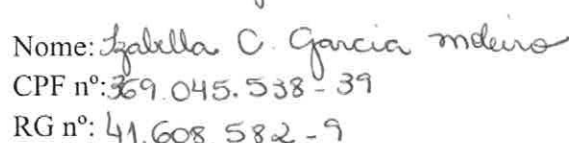 Nome: Izabella C. Garcia
CPF nº: 369.045.538-39
RG nº: 41.608 582-9